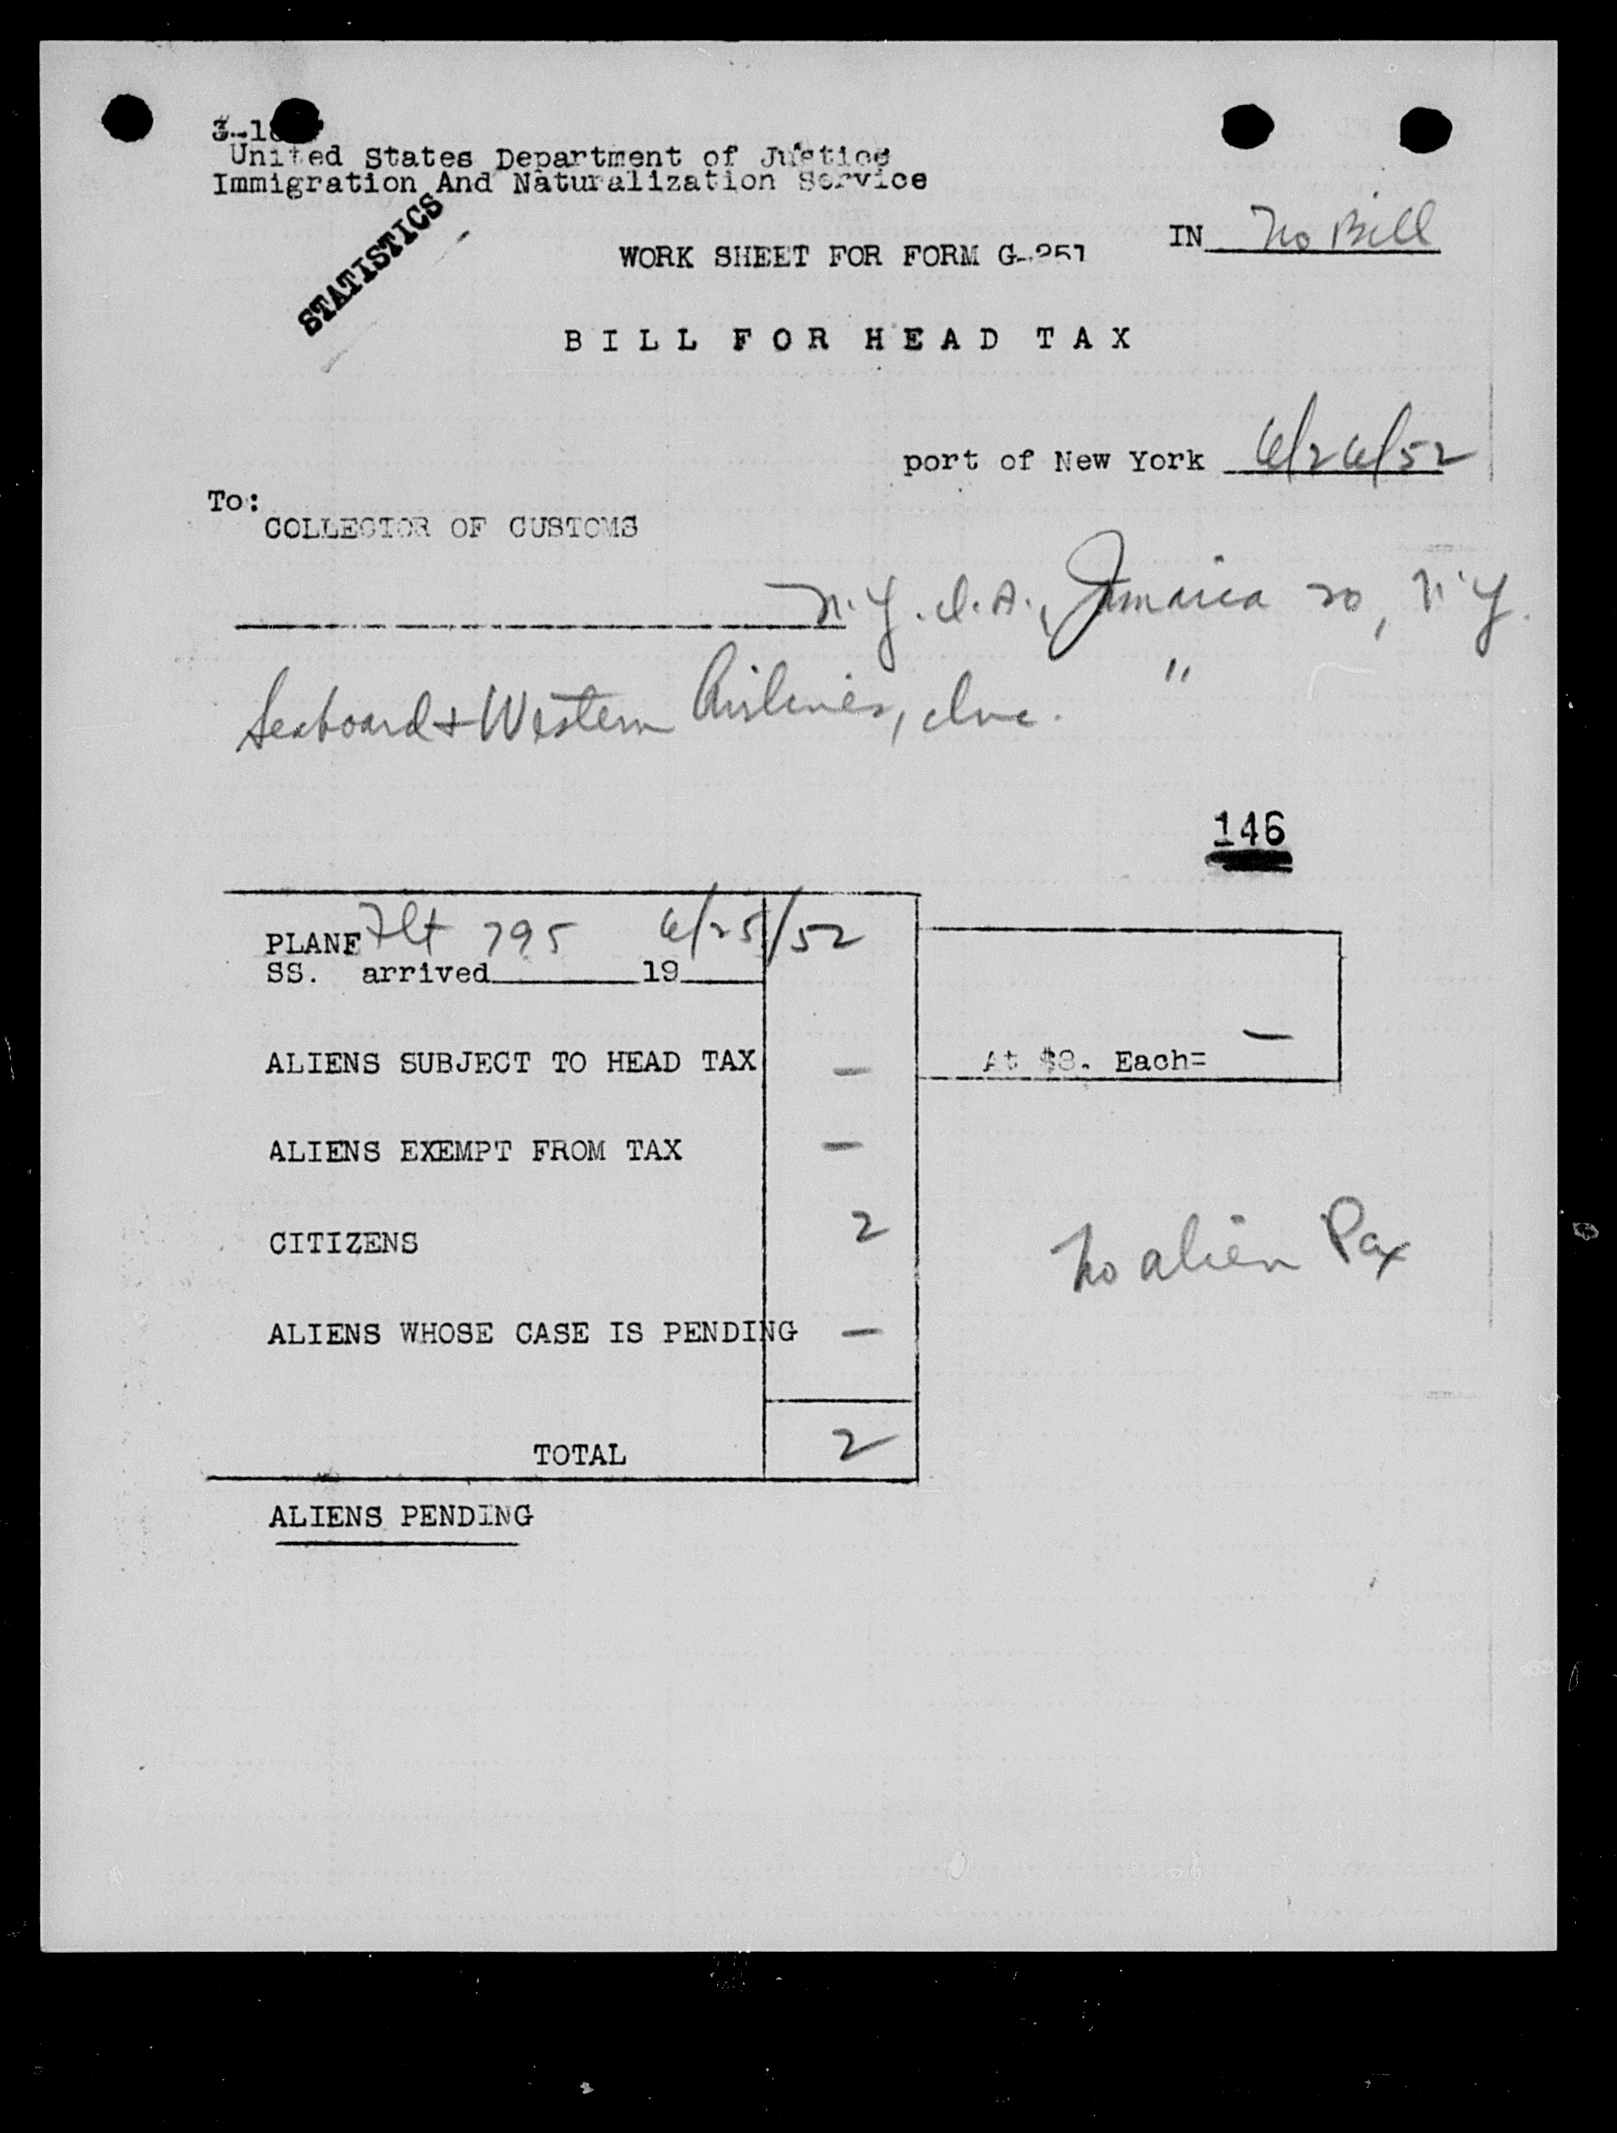 United States Department of Justice
Immigration And Naturalization Service
STATISTICS
IN No Bill
WORK SHEET FOR FORM G-251
BILL FOR HEAD TAX
port of New York 6/26/52
To:
COLLECTOR OF CUSTOMS
N.Y. I.A., Jamaica 20, N.Y.
Seaboard & Western Airlines, Inc. "
146
PLANE Flt 795 6/25/52
SS. arrived 19
ALIENS SUBJECT TO HEAD TAX — At $8. Each= —
ALIENS EXEMPT FROM TAX —
CITIZENS 2 No alien Pax
ALIENS WHOSE CASE IS PENDING —
TOTAL 2
ALIENS PENDING